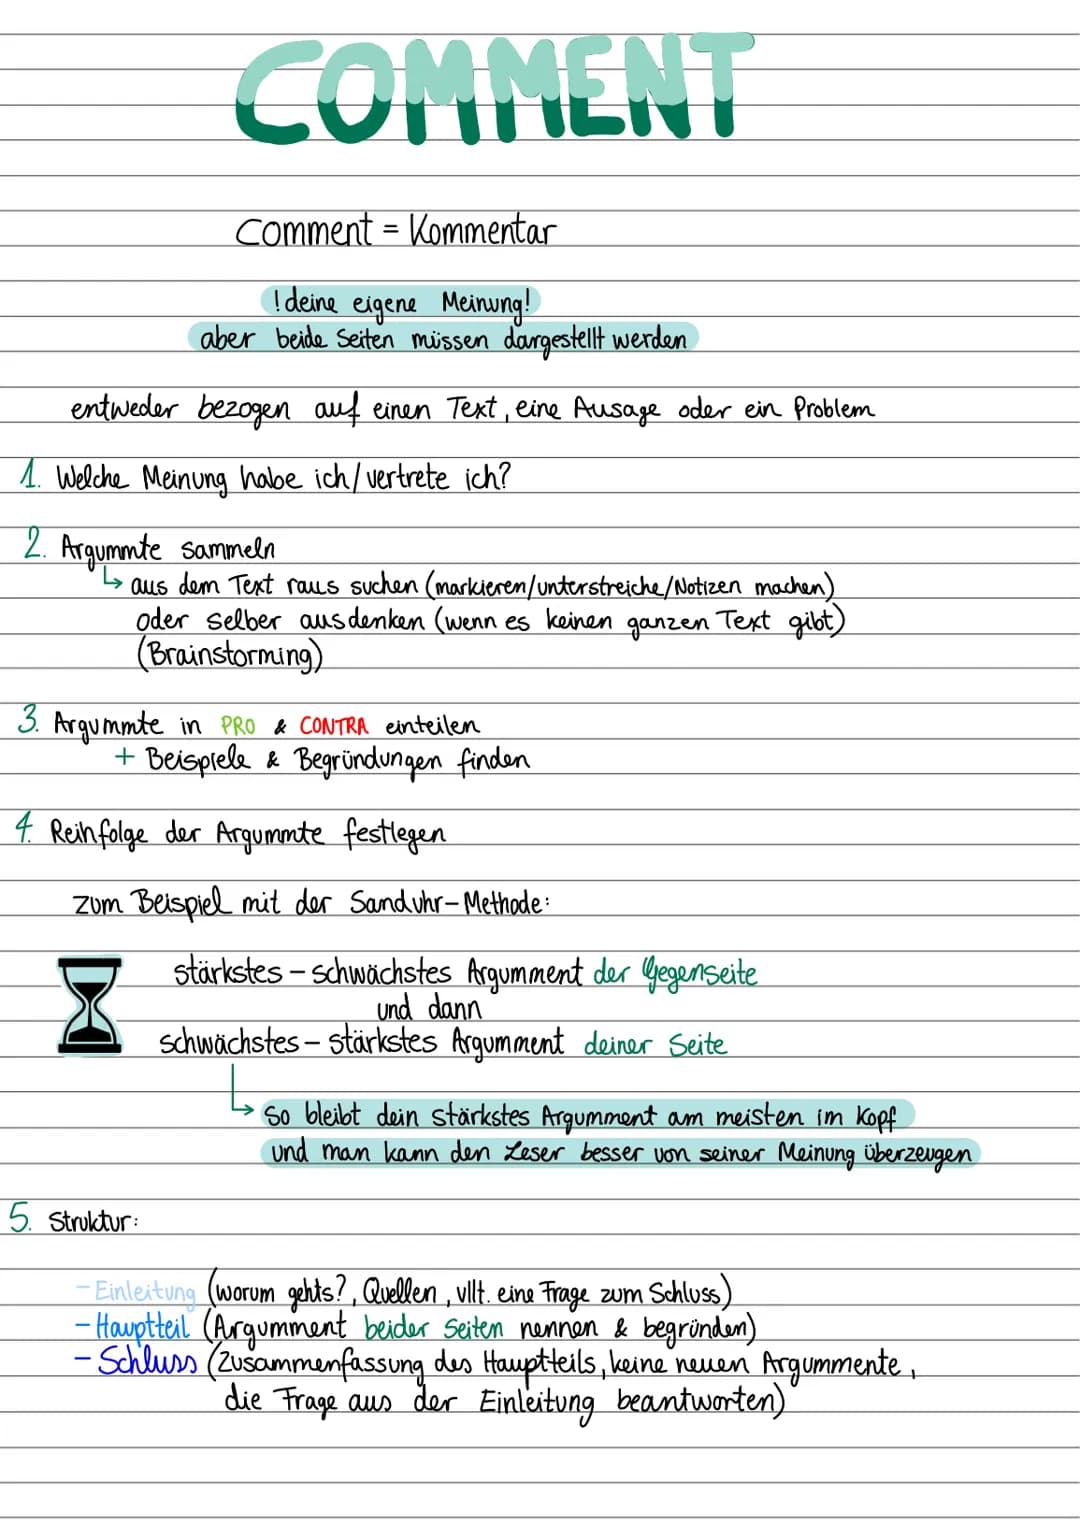 COMMENT
Comment = Kommentar
! deine eigene Meinung!
aber beide Seiten müssen dargestellt werden
entweder bezogen auf einen Text, eine Ausage oder ein Problem
1. Welche Meinung habe ich/vertrete ich?
2. Argummte sammeln
↳ aus dem Text raus suchen (markieren/unterstreiche/Notizen machen)
oder selber ausdenken (wenn es keinen ganzen Text gibt)
(Brainstorming)
3. Argummte in PRO & CONTRA einteilen
+ Beispiele & Begründungen finden
4. Reihfolge der Argummte festlegen
zum Beispiel mit der Sanduhr-Methode:
stärkstes - schwächstes Argumment der Gegenseite
und dann
schwächstes - stärkstes Argumment deiner Seite
↳ So bleibt dein stärkstes Argumment am meisten im Kopf
und man kann den Leser besser von seiner Meinung überzeugen
5. Struktur:
- Einleitung (worum gehts?, Quellen, vllt. eine Frage zum Schluss)
- Hauptteil (Argumment beider Seiten nennen & begründen)
- Schluss (Zusammenfassung des Hauptteils, keine neuen Argummente,
die Frage aus der Einleitung beantworten)